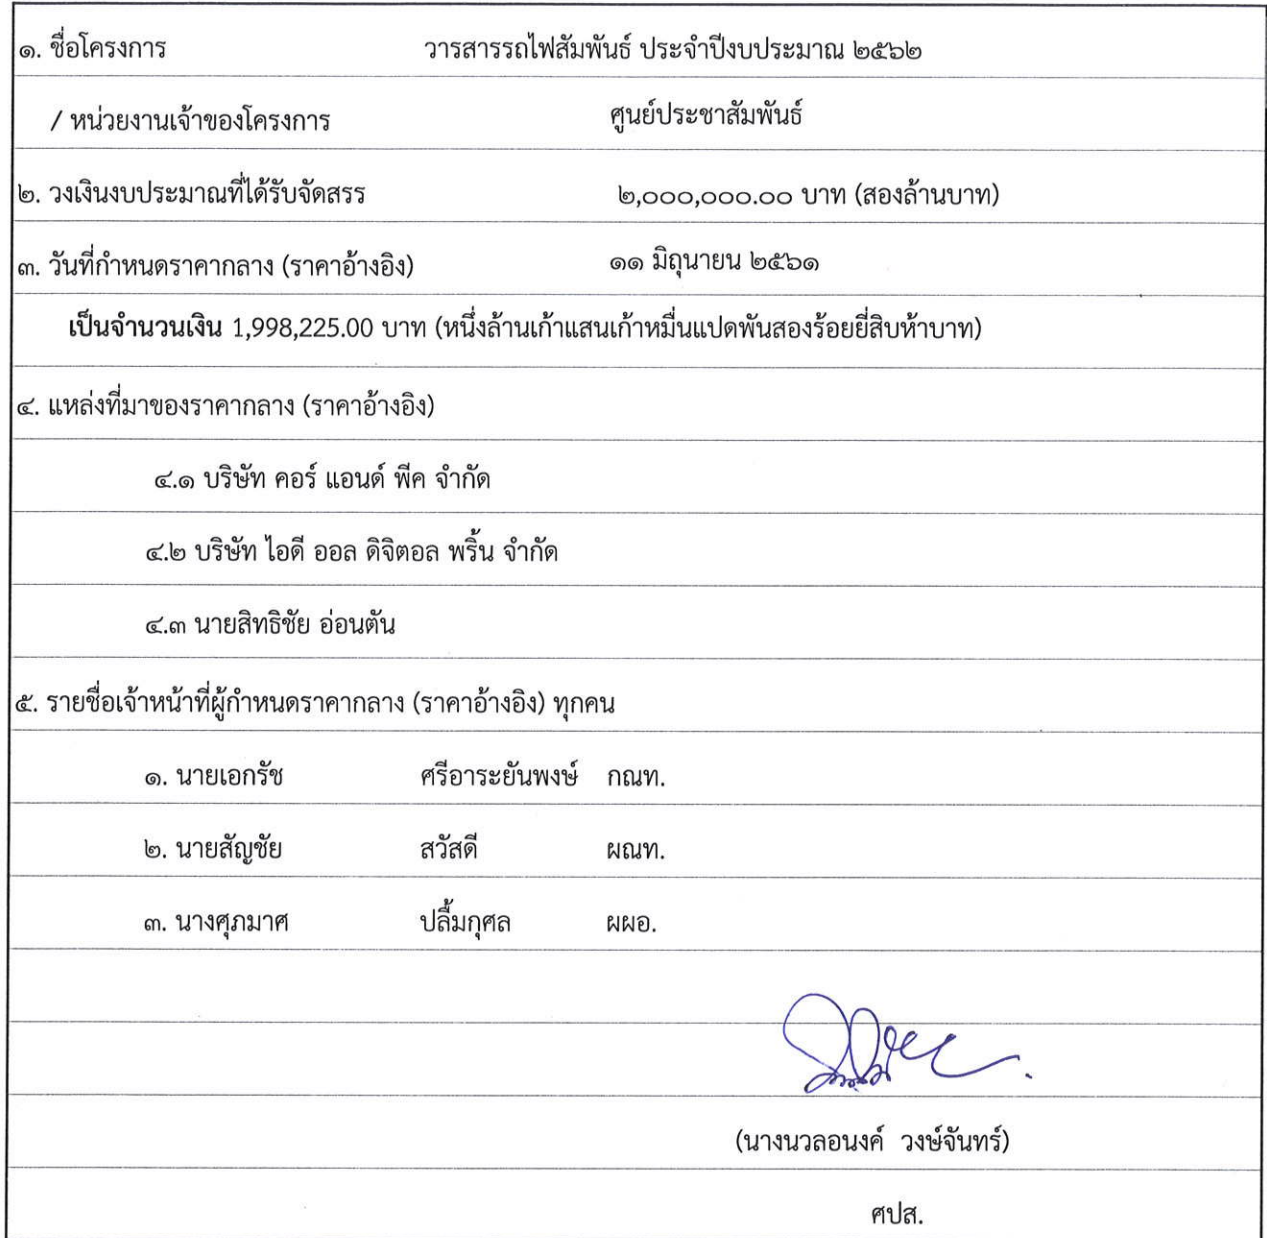 ๑. ชื่อโครงการ วารสารรถไฟสัมพันธ์ ประจำปีงบประมาณ ๒๕๖๒
/ หน่วยงานเจ้าของโครงการ ศูนย์ประชาสัมพันธ์
๒. วงเงินงบประมาณที่ได้รับจัดสรร ๒,๐๐๐,๐๐๐.๐๐ บาท (สองล้านบาท)
๓. วันที่กำหนดราคากลาง (ราคาอ้างอิง) ๑๑ มิถุนายน ๒๕๖๑
เป็นจำนวนเงิน 1,998,225.00 บาท (หนึ่งล้านเก้าแสนเก้าหมื่นแปดพันสองร้อยยี่สิบห้าบาท)
๔. แหล่งที่มาของราคากลาง (ราคาอ้างอิง)
๔.๑ บริษัท คอร์ แอนด์ พีค จำกัด
๔.๒ บริษัท ไอดี ออล ดิจิตอล พริ้น จำกัด
๔.๓ นายสิทธิชัย อ่อนตัน
๕. รายชื่อเจ้าหน้าที่ผู้กำหนดราคากลาง (ราคาอ้างอิง) ทุกคน
๑. นายเอกรัช ศรีอาระยันพงษ์ กณท.
๒. นายสัญชัย สวัสดี ผณท.
๓. นางศุภมาศ ปลื้มกุศล ผผอ.
(นางนวลอนงค์ วงษ์จันทร์)
ศปส.